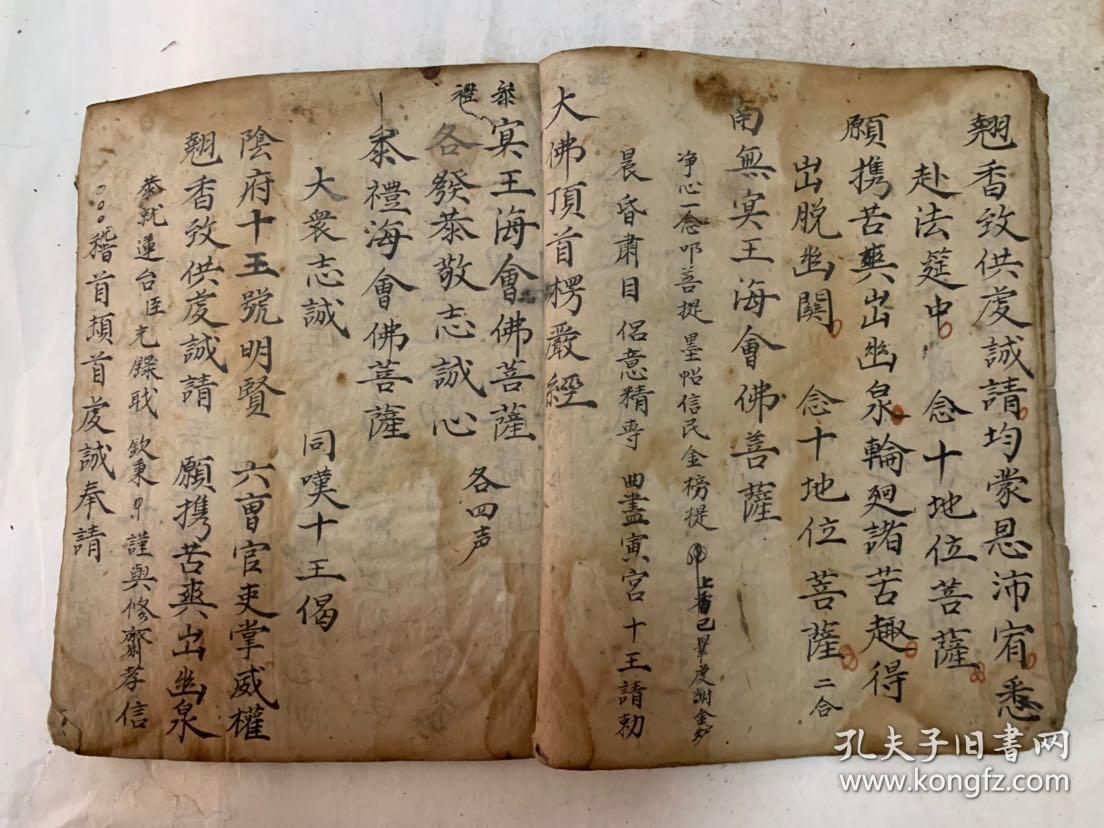 翹香致供虔誠請均蒙恩沛宥悉
赴法筵中 念十地位菩薩
願携苦爽出幽泉輪廻諸苦趣得
出脫幽関 念十地位菩薩二合
南無冥王海會佛菩薩
净心一念叩菩提 墨帖信民金榜提 上香已畢虔謝金妙
晨昏肅目 侶意精專 曲盡寅宮 十王請勅
大佛頂首楞嚴經
叅禮
冥王海會佛菩薩 各四声
各發恭敬志誠心
叅禮海會佛菩薩
大衆志誠 同嘆十王偈
陰府十王號明賢 六曺官吏掌威權
翹香致供虔誠請 願携苦爽出幽泉
恭就蓮台臣 欽秉 謹與修齋孝信
稽首頓首虔誠奉請
孔夫子旧书网
www.kongfz.com